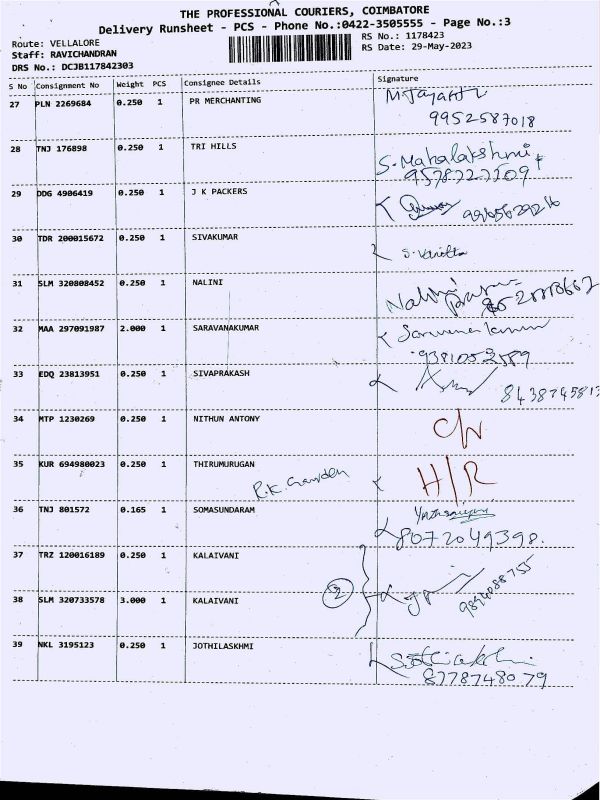 THE PROFESSIONAL COURIERS, COIMBATORE
Delivery Runsheet - PCS - Phone No.:0422-3505555 - Page No.:3
Route: VELLALORE
RS No.: 1178423
Staff: RAVICHANDRAN
RS Date: 29-May-2023
DRS No.: DCJB117842303
S No Consignment No Weight PCS Consignee Details Signature
27 PLN 2269684 0.250 1 PR MERCHANTING
9952587018
28 TNJ 176898 0.250 1 TRI HILLS S.Mahalakshmi
29 DDG 4906419 0.250 1 J K PACKERS
30 TDR 200015672 0.250 1 SIVAKUMAR
31 SLM 320808452 0.250 1 NALINI Nalini
32 MAA 297091987 2.000 1 SARAVANAKUMAR
33 EDQ 23813951 0.250 1 SIVAPRAKASH
8438745813
34 MTP 1230269 0.250 1 NITHUN ANTONY
35 KUR 694980023 0.250 1 THIRUMURUGAN H/R
36 TNJ 801572 0.165 1 SOMASUNDARAM
8072049398.
37 TRZ 120016189 0.250 1 KALAIVANI
2
38 SLM 320733578 3.000 1 KALAIVANI
39 NKL 3195123 0.250 1 JOTHILASKHMI
8778748079